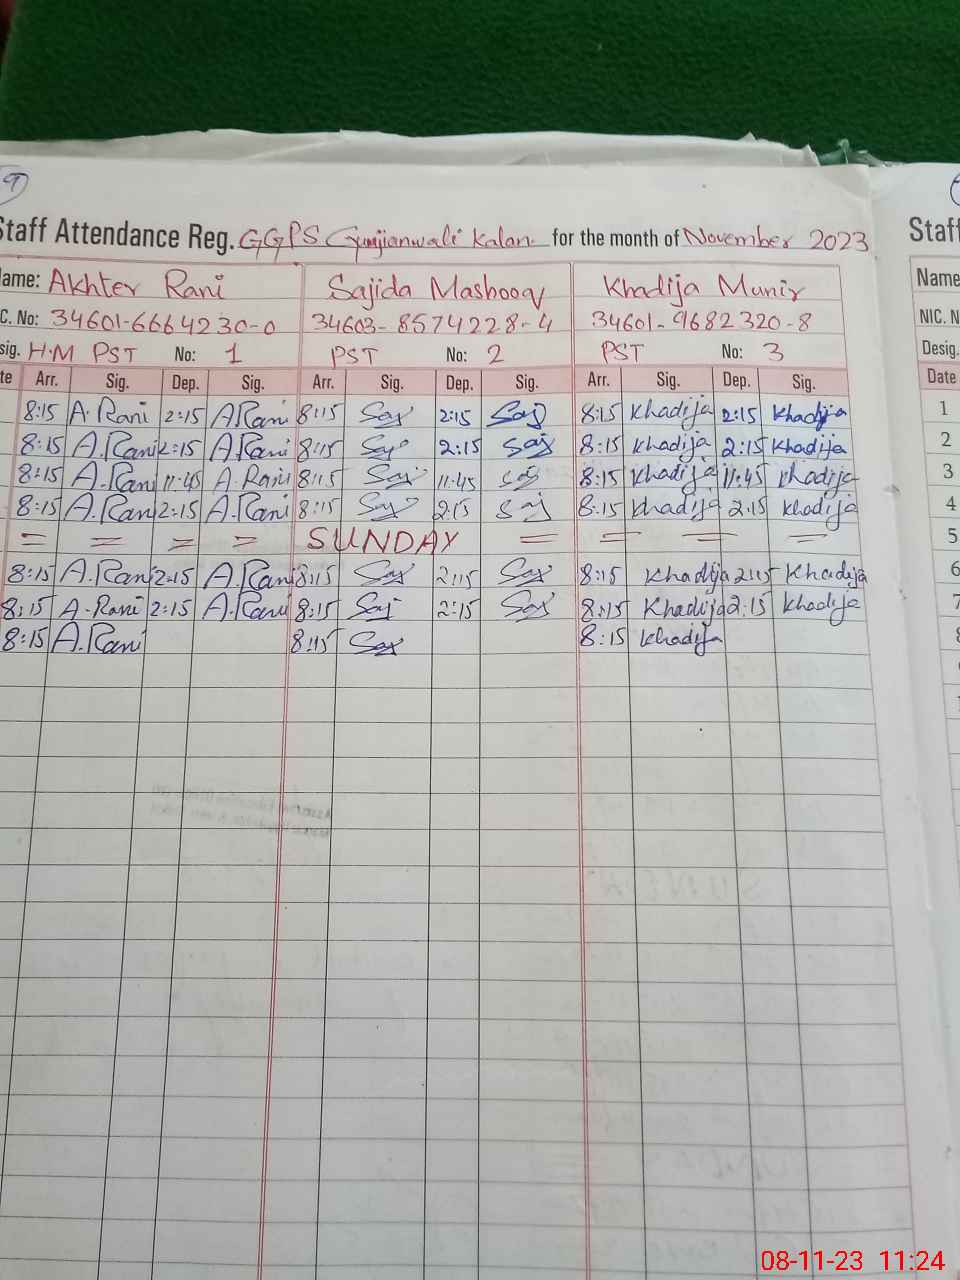 9
Staff Attendance Reg. GGPS Gunjianwali Kalan for the month of November 2023 Staff
Name: Akhter Rani Sajida Mashooq Khadija Munir Name
C. No: 34601-6664230-0 34603-8574228-4 34601-9682320-8 NIC. N
sig. H.M PST No: 1 PST No: 2 PST No: 3 Desig.
te Arr. Sig. Dep. Sig. Arr. Sig. Dep. Sig. Arr. Sig. Dep. Sig. Date
8:15 A.Rani 2:15 A.Rani 8:15 Saj 2:15 Saj 8:15 Khadija 2:15 Khadija 1
8:15 A.Rani 2:15 A.Rani 8:15 Saj 2:15 Saj 8:15 Khadija 2:15 Khadija 2
8:15 A.Rani 11:45 A.Rani 8:15 Saj 11:45 Saj 8:15 Khadija 11:45 Khadija 3
8:15 A.Rani 2:15 A.Rani 8:15 Saj 2:15 Saj 8:15 Khadija 2:15 Khadija 4
= = = = SUNDAY = = = = 5
8:15 A.Rani 2:15 A.Rani 8:15 Saj 2:15 Saj 8:15 Khadija 2:15 Khadija 6
8:15 A.Rani 2:15 A.Rani 8:15 Saj 2:15 Saj 8:15 Khadija 2:15 Khadija 7
8:15 A.Rani 8:15 Saj 8:15 Khadija 8
08-11-23 11:24